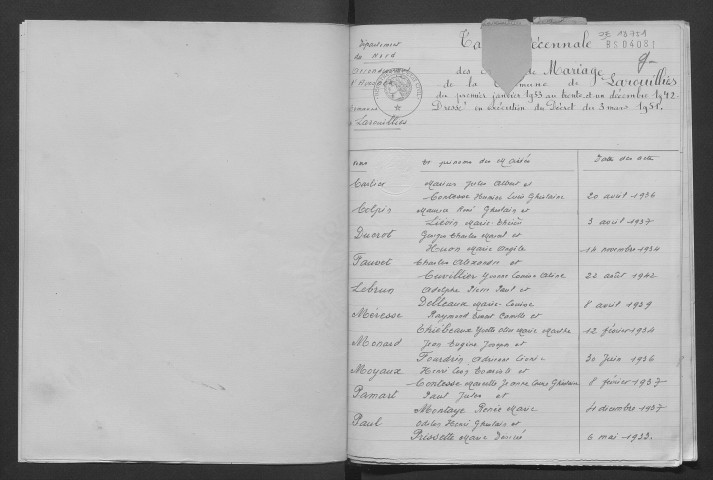 2E 16751
BS04081
Département
du Nord
Arrondissement
Larouillies
Ta Décennale
des de Mariage
de la Commune de Larouillies
du premier janvier 1933 au trente et un décembre 1942
Dressé en exécution du Décret des 3 mars 1951.
Noms et prénoms des Mariés Date des actes
Marius Jules Albert et
Contesse Lucie Ghislaine 20 avril 1936
Maurice René Ghislain et
Marie 3 avril 1937
Ducrot Georges Charles Marcel et
Huon Marie Angèle 14 novembre 1934
Fauvet Charles Alexandre et
Cuvillier Yvonne Louise Aline 22 août 1942
Lebrun Adolphe Pierre Paul et
Delleaux Marie-Louise 8 avril 1939
Méresse Raymond Ernest Camille et
Thiébeaux Yvette Marie Marthe 12 février 1934
Monard Jean Eugène Joseph et
Fourdrin Adrienne 30 Juin 1936
Moyaux Henri Léon et
Contesse Marcelle Jeanne Ghislaine 8 février 1937
Pamart Paul Jules et
Montaye Renée Marie 4 décembre 1937
Paul Henri Ghislain et
Prissette Marie Désirée 6 mai 1933.